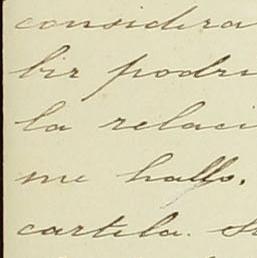 considera
bir podri
la relaci
me hallo,
cartela. S